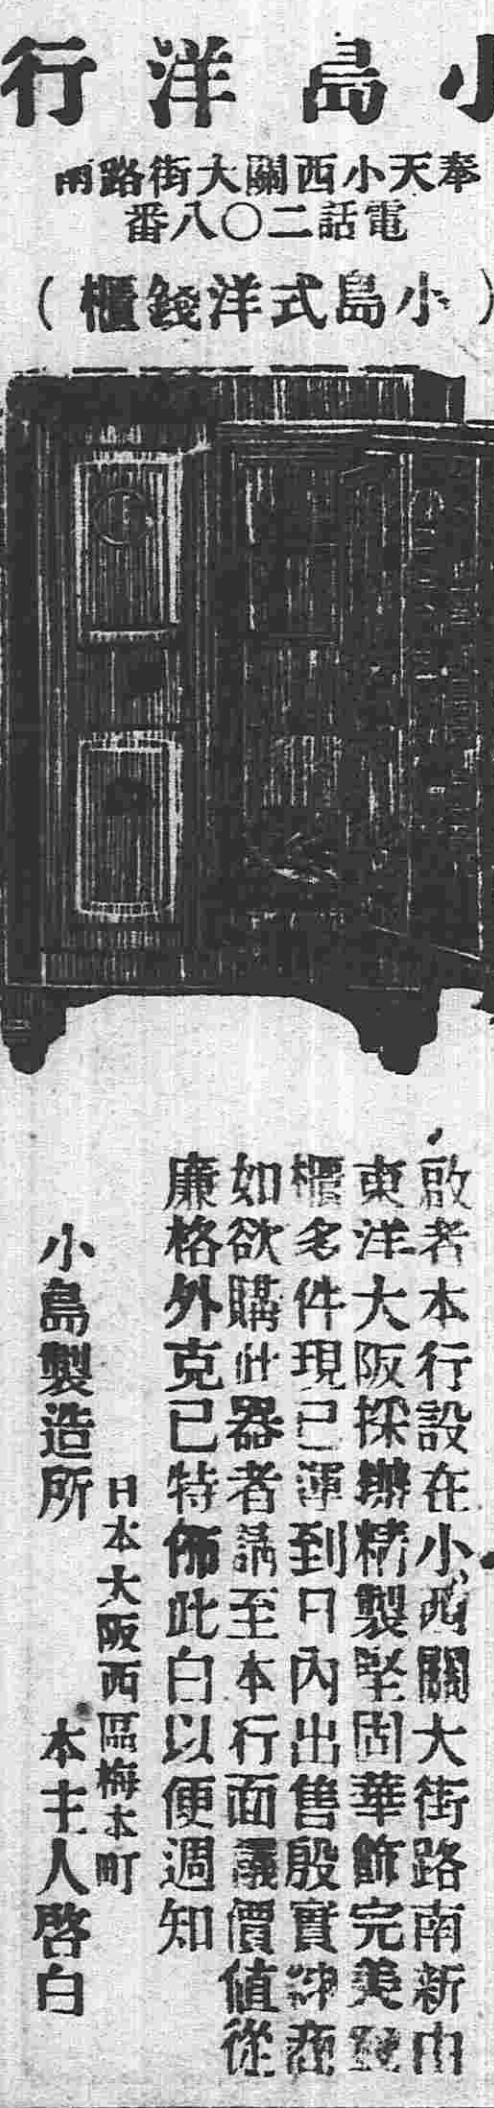 小島洋行
奉天小西關大街路南
電話二〇八番
（小島式洋錢櫃）
啟者本行設在小西關大街路南新由
東洋大阪採辦精製堅固華飾完美錢
櫃多件現已運到日內出售殷實紳商
如欲購此器者請至本行面議價值從
廉格外克已特佈此白以便週知
日本大阪西區梅本町
小島製造所　本主人啓白